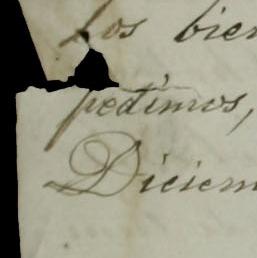 Los bien
pedimos,
Diciem